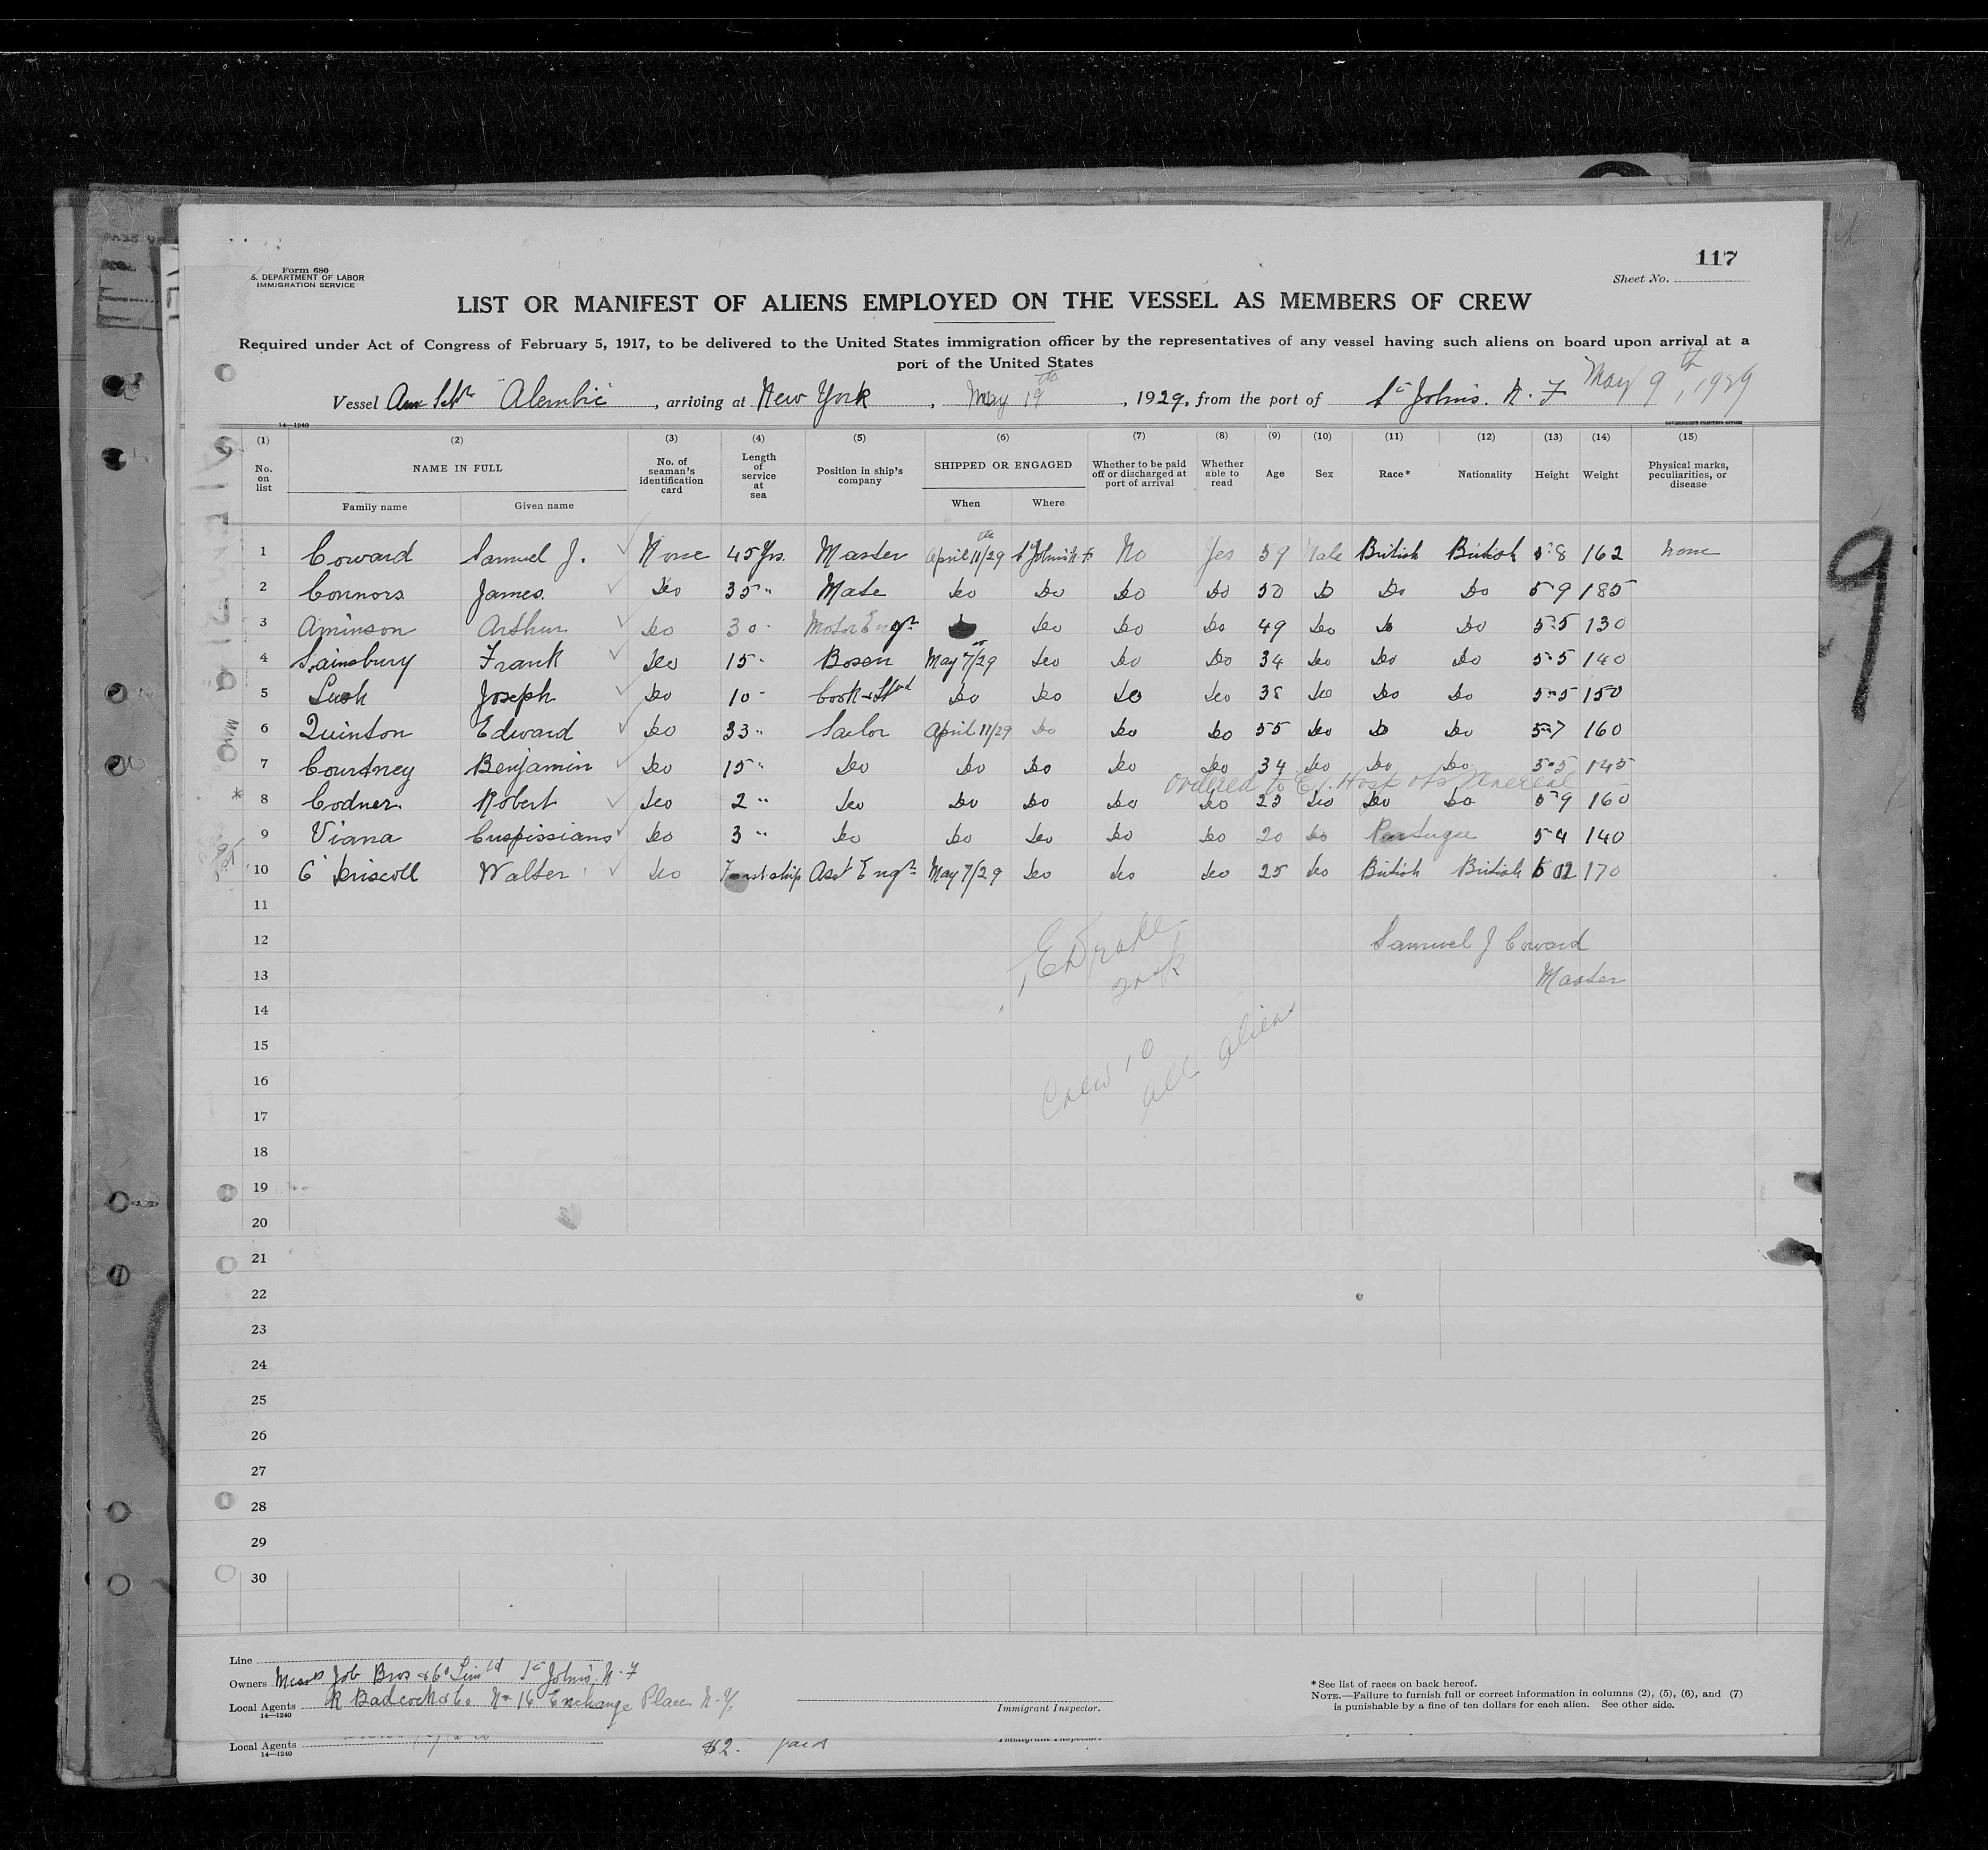 117
Form 680
S. DEPARTMENT OF LABOR
IMMIGRATION SERVICE
Sheet No.
LIST OR MANIFEST OF ALIENS EMPLOYED ON THE VESSEL AS MEMBERS OF CREW
Required under Act of Congress of February 5, 1917, to be delivered to the United States immigration officer by the representatives of any vessel having such aliens on board upon arrival at a
port of the United States
Vessel Am Schr "Alembic", arriving at New York, May 19th, 1929, from the port of St Johns. N. F May 9th, 1929
14—1240 GOVERNMENT PRINTING OFFICE
(1) (2) (3) (4) (5) (6) (7) (8) (9) (10) (11) (12) (13) (14) (15)
No. on list NAME IN FULL Family name Given name No. of seaman's identification card Length of service at sea Position in ship's company SHIPPED OR ENGAGED When Where Whether to be paid off or discharged at port of arrival Whether able to read Age Sex Race* Nationality Height Weight Physical marks, peculiarities, or disease
1 Coward Samuel J. None 45 Yrs. Master April 11th/29 St Johns N F No Yes 59 Male British British 5"8 162 none
2 Connors James. Do 35 " Mate Do Do Do Do 50 Do Do Do 5"9 185
3 Aminson Arthur Do 30 " Motor Engr Do Do Do 49 Do Do Do 5"5 130
4 Sainsbury Frank Do 15 " Bosen May 7th/29 Do Do Do 34 Do Do Do 5"5 140
5 Lush Joseph Do 10 " Cook & Std Do Do Do Do 38 Do Do Do 5"5 150
6 Quinton Edward Do 33 " Sailor April 11/29 Do Do Do 55 Do Do Do 5"7 160
7 Courtney Benjamin Do 15 " Do Do Do Do Do 34 Do Do Do 5"5 145
Ordered to E.I. Hosp obs Venereal
8 Codner. Robert Do 2 " Do Do Do Do Do 23 Do Do Do 5"9 160
9 Viana Cuspissians Do 3 " Do Do Do Do Do 20 Do Portugee 5"4 140
10 O'Driscoll Walter Do First ship Asst Engr May 7/29 Do Do Do 25 Do British British 170
11
12 Samuel J Coward
13 Master
14
15
Crew 10
all aliens
16
17
18
19
20
21
22
23
24
25
26
27
28
29
30
9
Line
Owners Messrs Job Bros & Co Limtd St Johns N. F
Local Agents R Badcock & Co No 16 Exchange Place N. Y.
14—1240
Immigrant Inspector.
* See list of races on back hereof.
NOTE.—Failure to furnish full or correct information in columns (2), (5), (6), and (7)
is punishable by a fine of ten dollars for each alien. See other side.
Local Agents
14—1240
$2. paid
Immigrant Inspector.